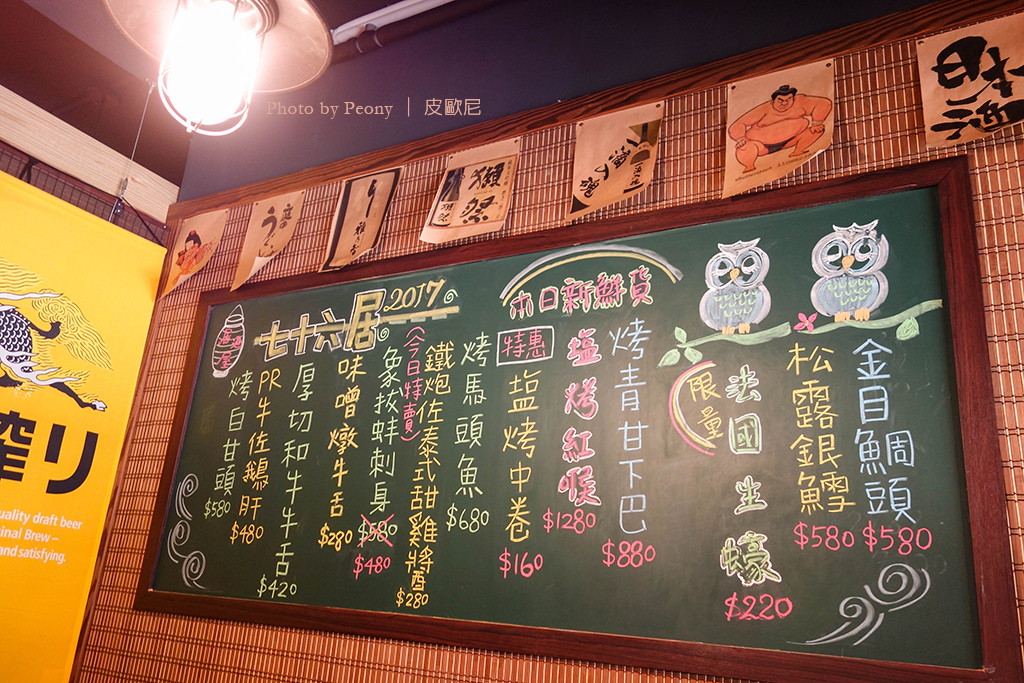 Photo by Peony | 皮歐尼
獺祭
七十六居 2017
本日新鮮貨
金目鯛頭 $580
松露銀鱈 $580
限量
法國生蠔 $220
烤青甘下巴 $880
塩烤紅喉 $1280
特惠
塩烤中卷 $160
烤馬頭魚 $680
鐵炮佐泰式甜雞將醬 $280
(今日特賣)
象拔蚌刺身 $580 $480
味噌燉牛舌 $280
厚切和牛牛舌 $420
PR牛佐鵝肝 $480
烤白甘頭 $580
搾り
uality draft beer
ginal Brew –
and satisfying.